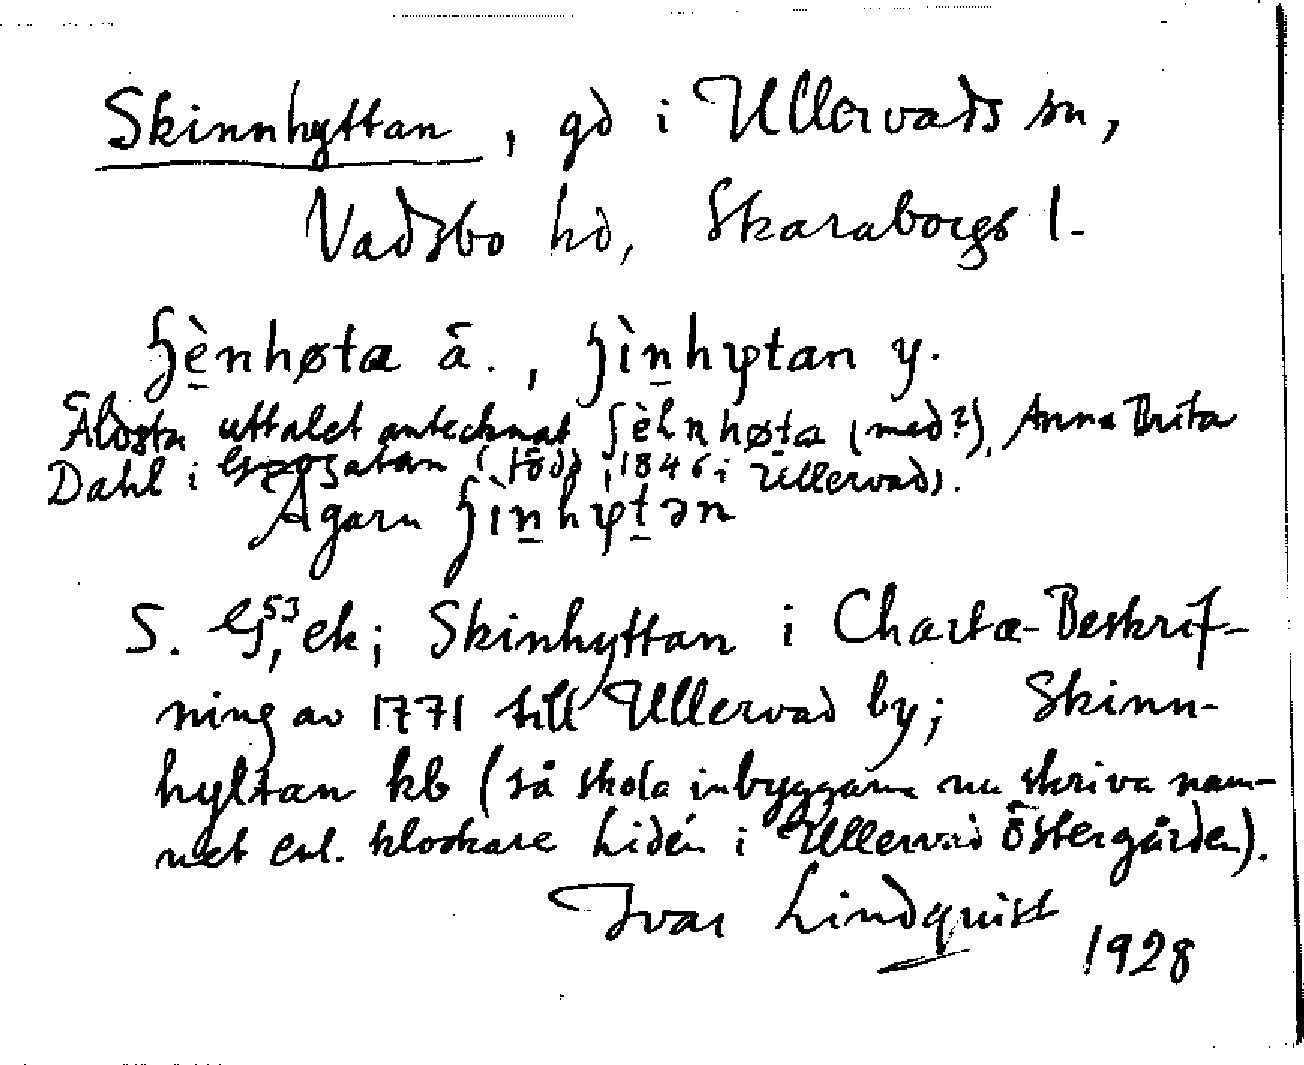 Skinnhyttan, gd i Ullervads sn,
Vadsbo hd, Skaraborgs l.
ʃè̱nhøta ä., ʃìṉhytan y.
Äldsta uttalet antecknat ʃèlnhøta (med?), Anna Brita
Dahl i (född 1846 i Ullervad).
Ägarn ʃìṉhyṯən
S. 53, ek; Skinhyttan i Charta-Beskrif-
ning av 1771 till Ullervad by; Skinn-
hyltan kb (så skola inbyggarne nu skriva nam-
net enl. klockare Lidén i Ullervad Östergården).
Ivar Lindquist
1928